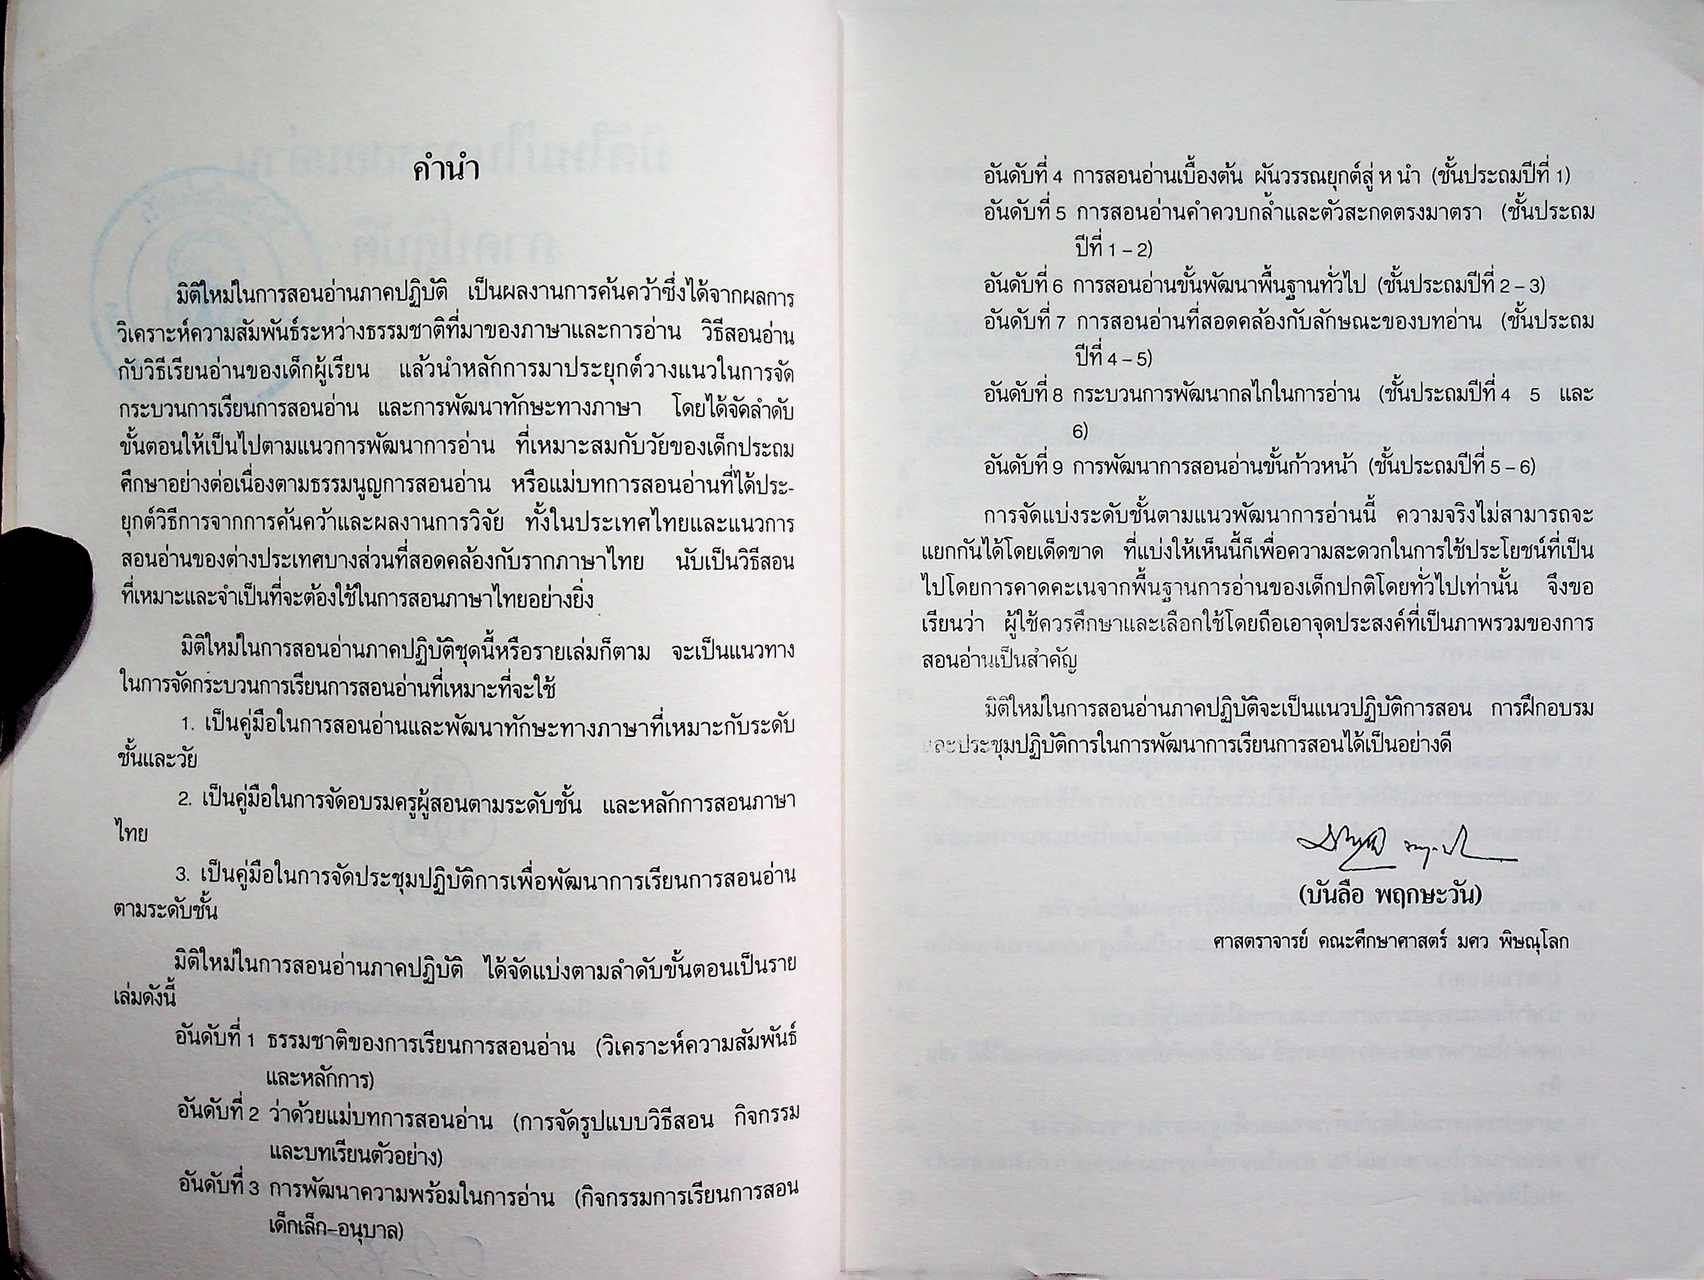 คำนำ
มิติใหม่ในการสอนอ่านภาคปฏิบัติ เป็นผลงานการค้นคว้าซึ่งได้จากผลการ
วิเคราะห์ความสัมพันธ์ระหว่างธรรมชาติที่มาของภาษาและการอ่าน วิธีสอนอ่าน
กับวิธีเรียนอ่านของเด็กผู้เรียน แล้วนำหลักการมาประยุกต์วางแนวในการจัด
กระบวนการเรียนการสอนอ่าน และการพัฒนาทักษะทางภาษา โดยได้จัดลำดับ
ขั้นตอนให้เป็นไปตามแนวการพัฒนาการอ่าน ที่เหมาะสมกับวัยของเด็กประถม
ศึกษาอย่างต่อเนื่องตามธรรมนูญการสอนอ่าน หรือแม่บทการสอนอ่านที่ได้ประ-
ยุกต์วิธีการจากการค้นคว้าและผลงานการวิจัย ทั้งในประเทศไทยและแนวการ
สอนอ่านของต่างประเทศบางส่วนที่สอดคล้องกับรากภาษาไทย นับเป็นวิธีสอน
ที่เหมาะและจำเป็นที่จะต้องใช้ในการสอนภาษาไทยอย่างยิ่ง
มิติใหม่ในการสอนอ่านภาคปฏิบัติชุดนี้หรือรายเล่มก็ตาม จะเป็นแนวทาง
ในการจัดกระบวนการเรียนการสอนอ่านที่เหมาะที่จะใช้
1. เป็นคู่มือในการสอนอ่านและพัฒนาทักษะทางภาษาที่เหมาะกับระดับ
ชั้นและวัย
2. เป็นคู่มือในการจัดอบรมครูผู้สอนตามระดับชั้น และหลักการสอนภาษา
ไทย
3. เป็นคู่มือในการจัดประชุมปฏิบัติการเพื่อพัฒนาการเรียนการสอนอ่าน
ตามระดับชั้น
มิติใหม่ในการสอนอ่านภาคปฏิบัติ ได้จัดแบ่งตามลำดับขั้นตอนเป็นราย
เล่มดังนี้
อันดับที่ 1 ธรรมชาติของการเรียนการสอนอ่าน (วิเคราะห์ความสัมพันธ์
และหลักการ)
อันดับที่ 2 ว่าด้วยแม่บทการสอนอ่าน (การจัดรูปแบบวิธีสอน กิจกรรม
และบทเรียนตัวอย่าง)
อันดับที่ 3 การพัฒนาความพร้อมในการอ่าน (กิจกรรมการเรียนการสอน
เด็กเล็ก-อนุบาล)
อันดับที่ 4 การสอนอ่านเบื้องต้น ผันวรรณยุกต์สู่ ห นำ (ชั้นประถมปีที่ 1)
อันดับที่ 5 การสอนอ่านคำควบกล้ำและตัวสะกดตรงมาตรา (ชั้นประถม
ปีที่ 1 – 2)
อันดับที่ 6 การสอนอ่านขั้นพัฒนาพื้นฐานทั่วไป (ชั้นประถมปีที่ 2 – 3)
อันดับที่ 7 การสอนอ่านที่สอดคล้องกับลักษณะของบทอ่าน (ชั้นประถม
ปีที่ 4 – 5)
อันดับที่ 8 กระบวนการพัฒนากลไกในการอ่าน (ชั้นประถมปีที่ 4 5 และ
6)
อันดับที่ 9 การพัฒนาการสอนอ่านขั้นก้าวหน้า (ชั้นประถมปีที่ 5 – 6)
การจัดแบ่งระดับชั้นตามแนวพัฒนาการอ่านนี้ ความจริงไม่สามารถจะ
แยกกันได้โดยเด็ดขาด ที่แบ่งให้เห็นนี้ก็เพื่อความสะดวกในการใช้ประโยชน์ที่เป็น
ไปโดยการคาดคะเนจากพื้นฐานการอ่านของเด็กปกติโดยทั่วไปเท่านั้น จึงขอ
เรียนว่า ผู้ใช้ควรศึกษาและเลือกใช้โดยถือเอาจุดประสงค์ที่เป็นภาพรวมของการ
สอนอ่านเป็นสำคัญ
มิติใหม่ในการสอนอ่านภาคปฏิบัติจะเป็นแนวปฏิบัติการสอน การฝึกอบรม
และประชุมปฏิบัติการในการพัฒนาการเรียนการสอนได้เป็นอย่างดี
(บันลือ พฤกษะวัน)
ศาสตราจารย์ คณะศึกษาศาสตร์ มศว พิษณุโลก